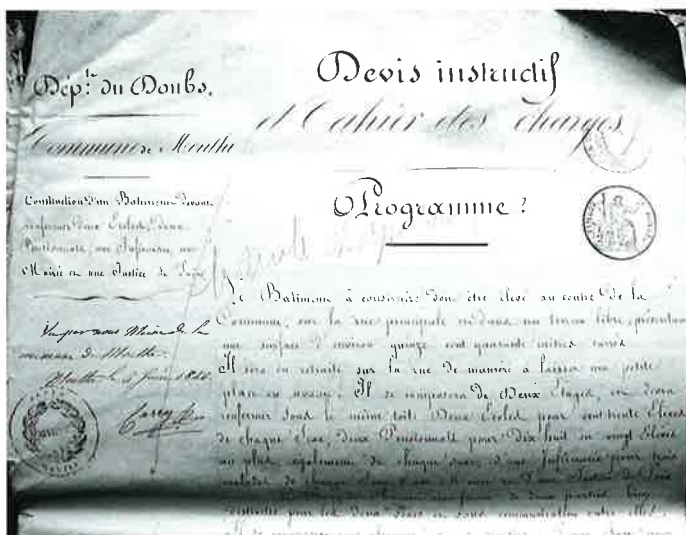 Dép.t du Doubs.
Commune de Mouthe
Construction d'un Batiment devant
renfermer deux Ecoles, deux
Pensionnats, une Infirmerie, une
Mairie et une Justice de Paix
Vu par nous Maire de la
commune de Mouthe
Mouthe le Juin
Devis instructif
et Cahier des charges
Programme
Le Batiment à construire doit être élevé au centre de la
Commune, sur la rue principale et dans un terrain libre, présentant
une surface d'environ quinze cent quarante mètres carrés
Il sera en retraite sur la rue de manière à laisser une petite
place au devant. Il se composera de Deux Etages, et devra
renfermer sous le même toit Deux Ecoles pour cent trente Elèves
de chaque Sexe, deux Pensionnats pour Dix huit ou vingt Elèves
au plus également de chaque sexe, d'une Infirmerie pour trois
malades de chaque Sexe, d'une Mairie et d'une Justice de Paix
de deux parties bien
distinctes pour les deux Sexes et sans communication entre elles